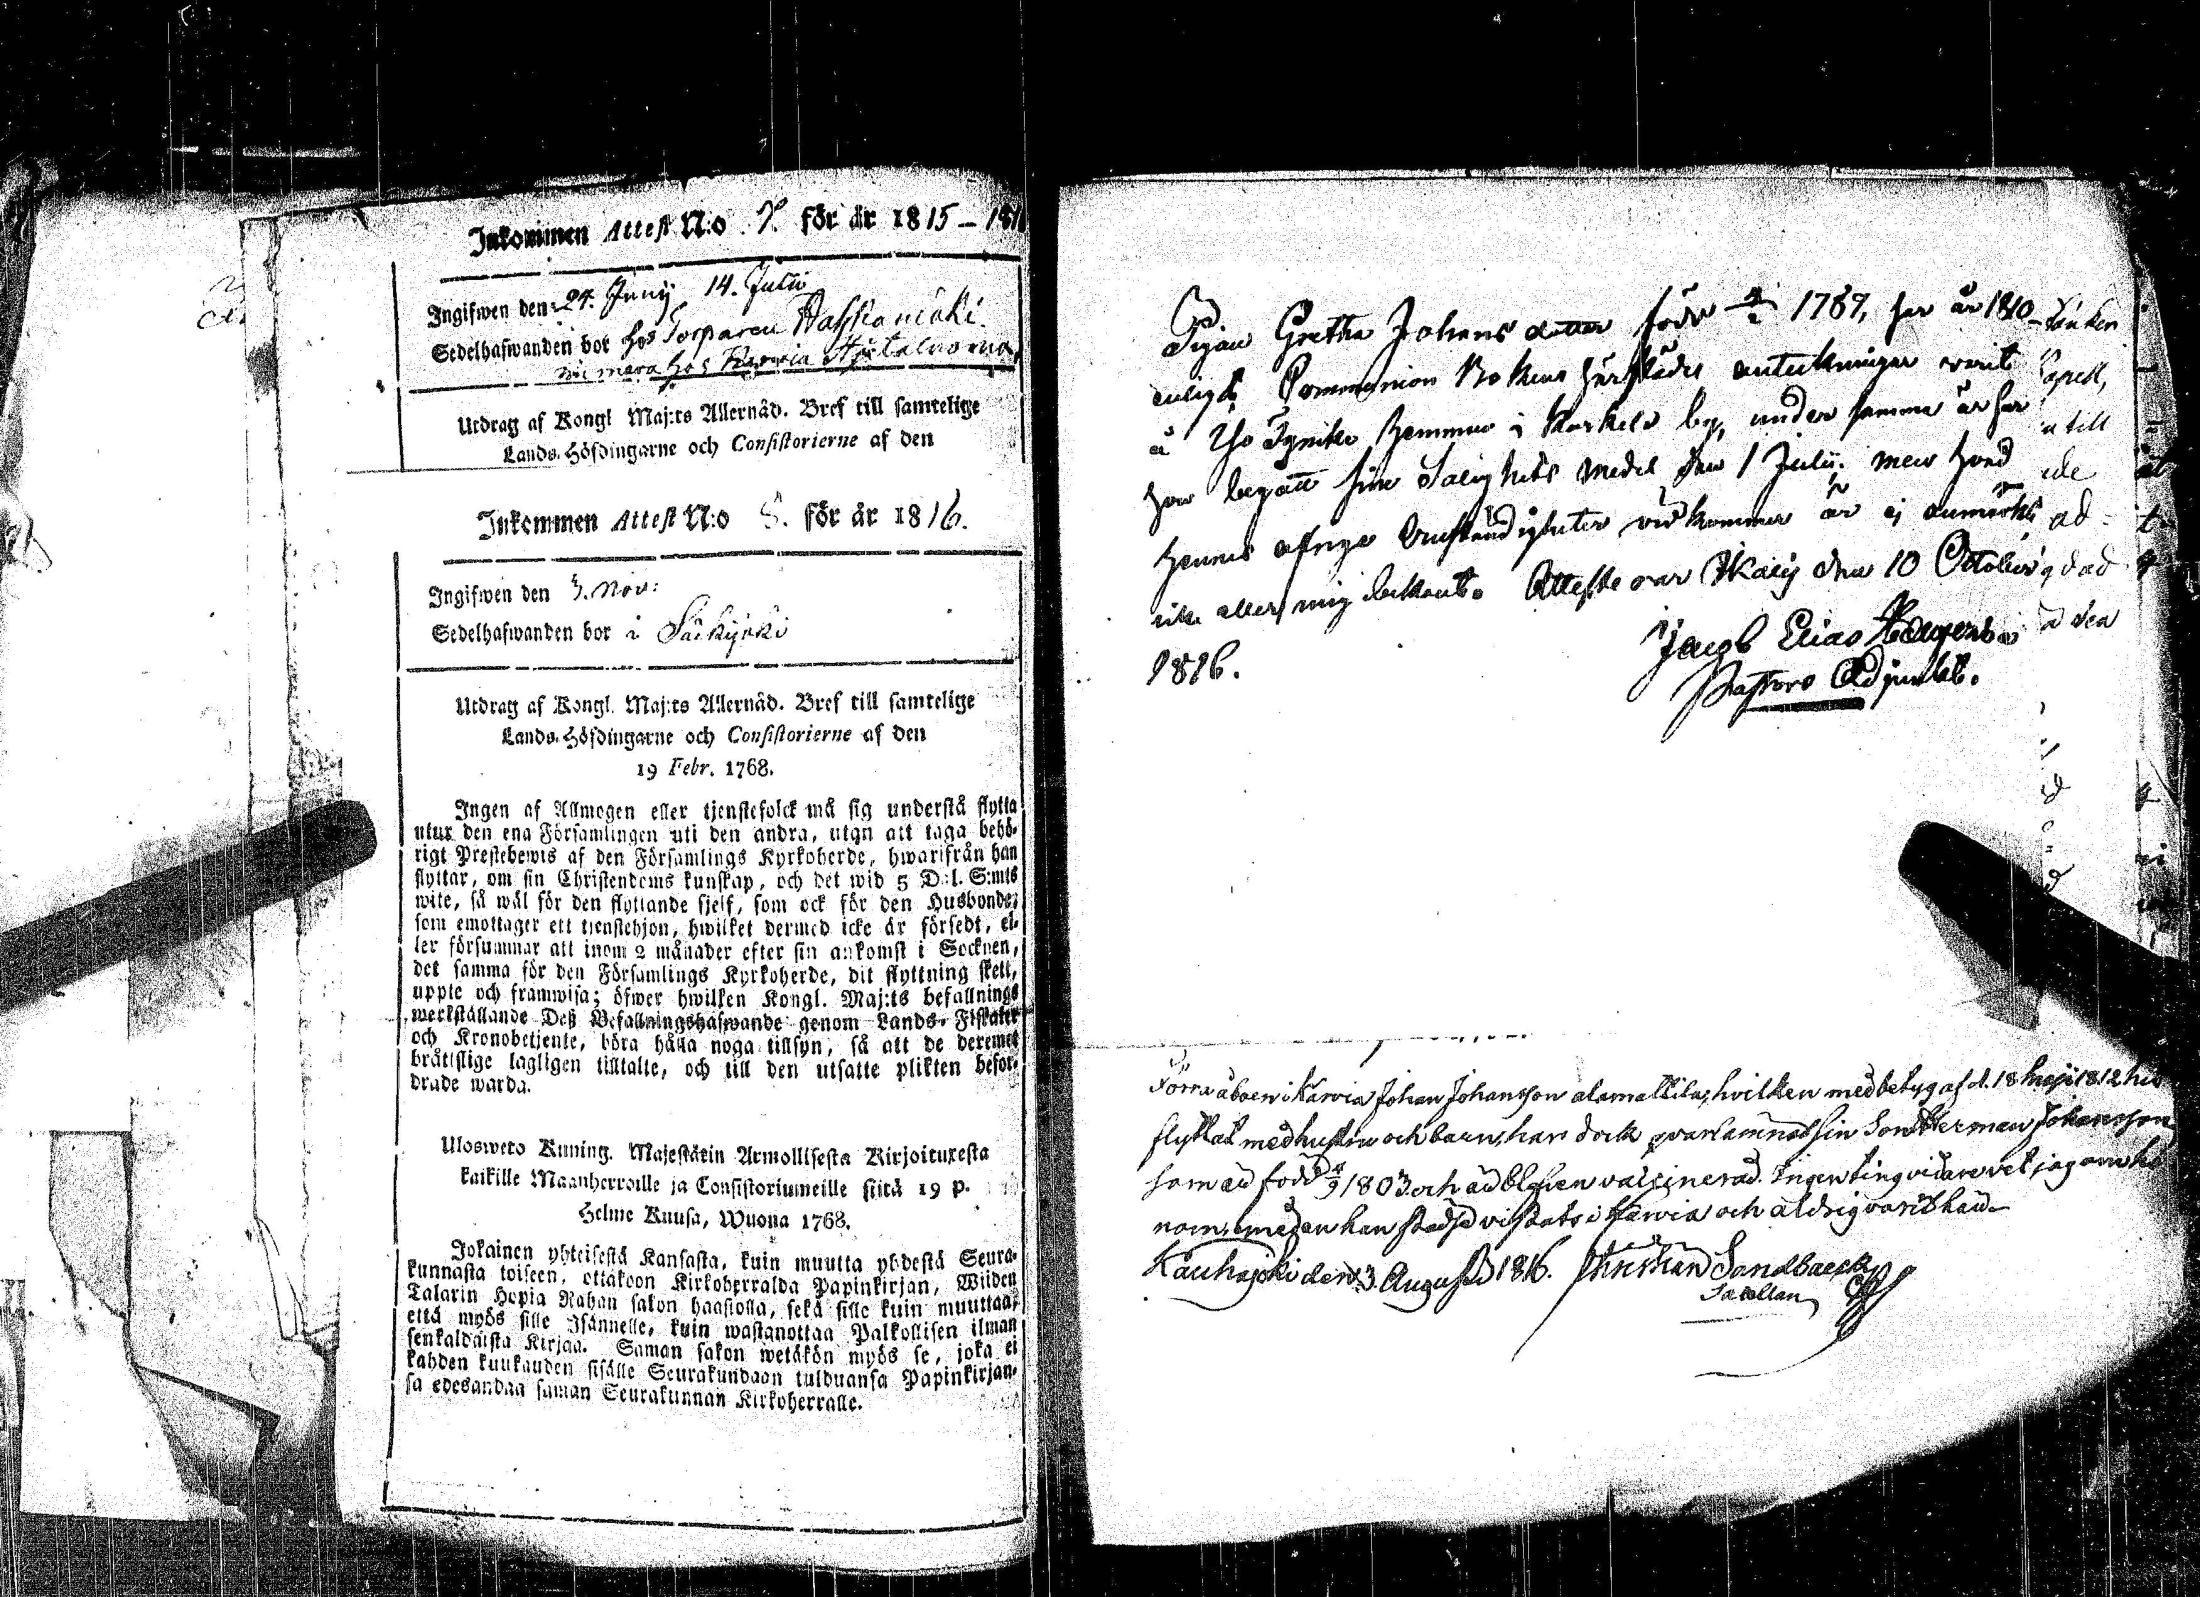 Inkommen Attest N:o 7. för år 1815 – 181
Ingifwen den 24. Junij 14. Julii
Sedelhafwanden bor hos Torparen
nu mera hos Karvia
Utdrag af Kongl Maj:ts Allernåd. Bref till samtelige
Lands-Höfdingarne och Consistorierne af den
Inkommen Attest N:o 8. för år 1816.
Ingifwen den 3. Nov:
Sedelhafwanden bor i Säkijäki
Utdrag af Kongl. Maj:ts Allernåd. Bref till samtelige
Lands-Höfdingarne och Consistorierne af den
19 Febr. 1768.
Ingen af Allmogen eller tjenstefolck må sig understå flytta
utur den ena Församlingen uti den andra, utan att taga behö-
rigt Prestebewis af den Församlings Kyrkoherde, hwarifrån han
flyttar, om sin Christendoms kunskap, och det wid 5 D:l. S:mts
wite, så wäl för den flyttande sjelf, som ock för den Husbonde,
som emottager ett tienstehjon, hwilket dermed icke är försedt, el-
ler försummar att inom 2 månader efter sin ankomst i Socknen,
det samma för den Församlings Kyrkoherde, dit flyttning skett,
uppte och framwisa; öfwer hwilken Kongl. Maj:ts befallnings
werkställande Deß Befallningshafwande genom Lands-Fiskaler
och Kronobetjente, böra hålla noga tillsyn, så att de deremot
bråtislige lagligen tilltalte, och till den utsatte plikten befor-
drade warda.
Ulosweto Kuning. Majestätin Armollisesta Kirjoituxesta
kaikille Maanherroille ja Consistoriumeille siitä 19 p.
Helme Kuusa, Wuona 1768.
Jokainen yhteisestä Kansasta, kuin muutta yhdestä Seura-
kunnasta toiseen, ottakoon Kirkoherralda Papinkirjan, Wiiden
Talarin Hopia Rahan sakon haastolla, sekä sille kuin muuttaa,
että myös sille Isännelle, kuin wastanottaa Palkollisen ilman
senkaldaista Kirjaa. Saman sakon wetäkön myös se, joka ei
kahden kuukauden sisälle Seurakundaan tulduansa Papinkirjan-
sa edesandaa saman Seurakunnan Kirkoherralle.
Pigan Gretha Johans dotter född 1787, har år 1810
enligt Communion Bokens härstädes anteckningar varit
å Hemman i Karkelo by, under samma år har
hon begått sine Salighets medel den 1 Julii. men hvad
hennes öfrige Omständigheter vidkommer är ej anmärkt
eller mig bekant. Attesterar Ikalis den 10 October
1816.
Jacob Elias
Pastors Adjunkt.
Förra åboen i Karvia Johan Johansson alamattila, hvilken med betyg af d. 18 Maji 1812 hit
flyttat med hustru och barn, har dock qvarlämnat sin Son Herman Johansson
som är född 1803 och är blefven vaccinerad. Ingen ting vidare vet jag om ho
nom, medan han städse vistats i Karvia och aldrig varit här.
Kauhajoki den 3. Augusti 1816. Christian Sandbaeck
Sacellan